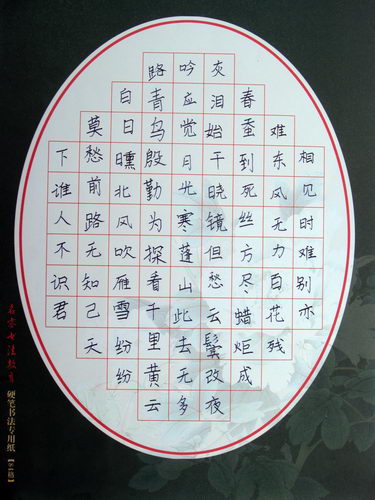 相见时难别亦
难东风无力百花残
春蚕到死丝方尽蜡炬成
灰泪始干晓镜但愁云鬓改夜
吟应觉月光寒蓬山此去无多
路青鸟殷勤为探看千里黄云
白日曛北风吹雁雪纷纷
莫愁前路无知己天
下谁人不识君
名家书法教育 硬笔书法专用纸【84格】